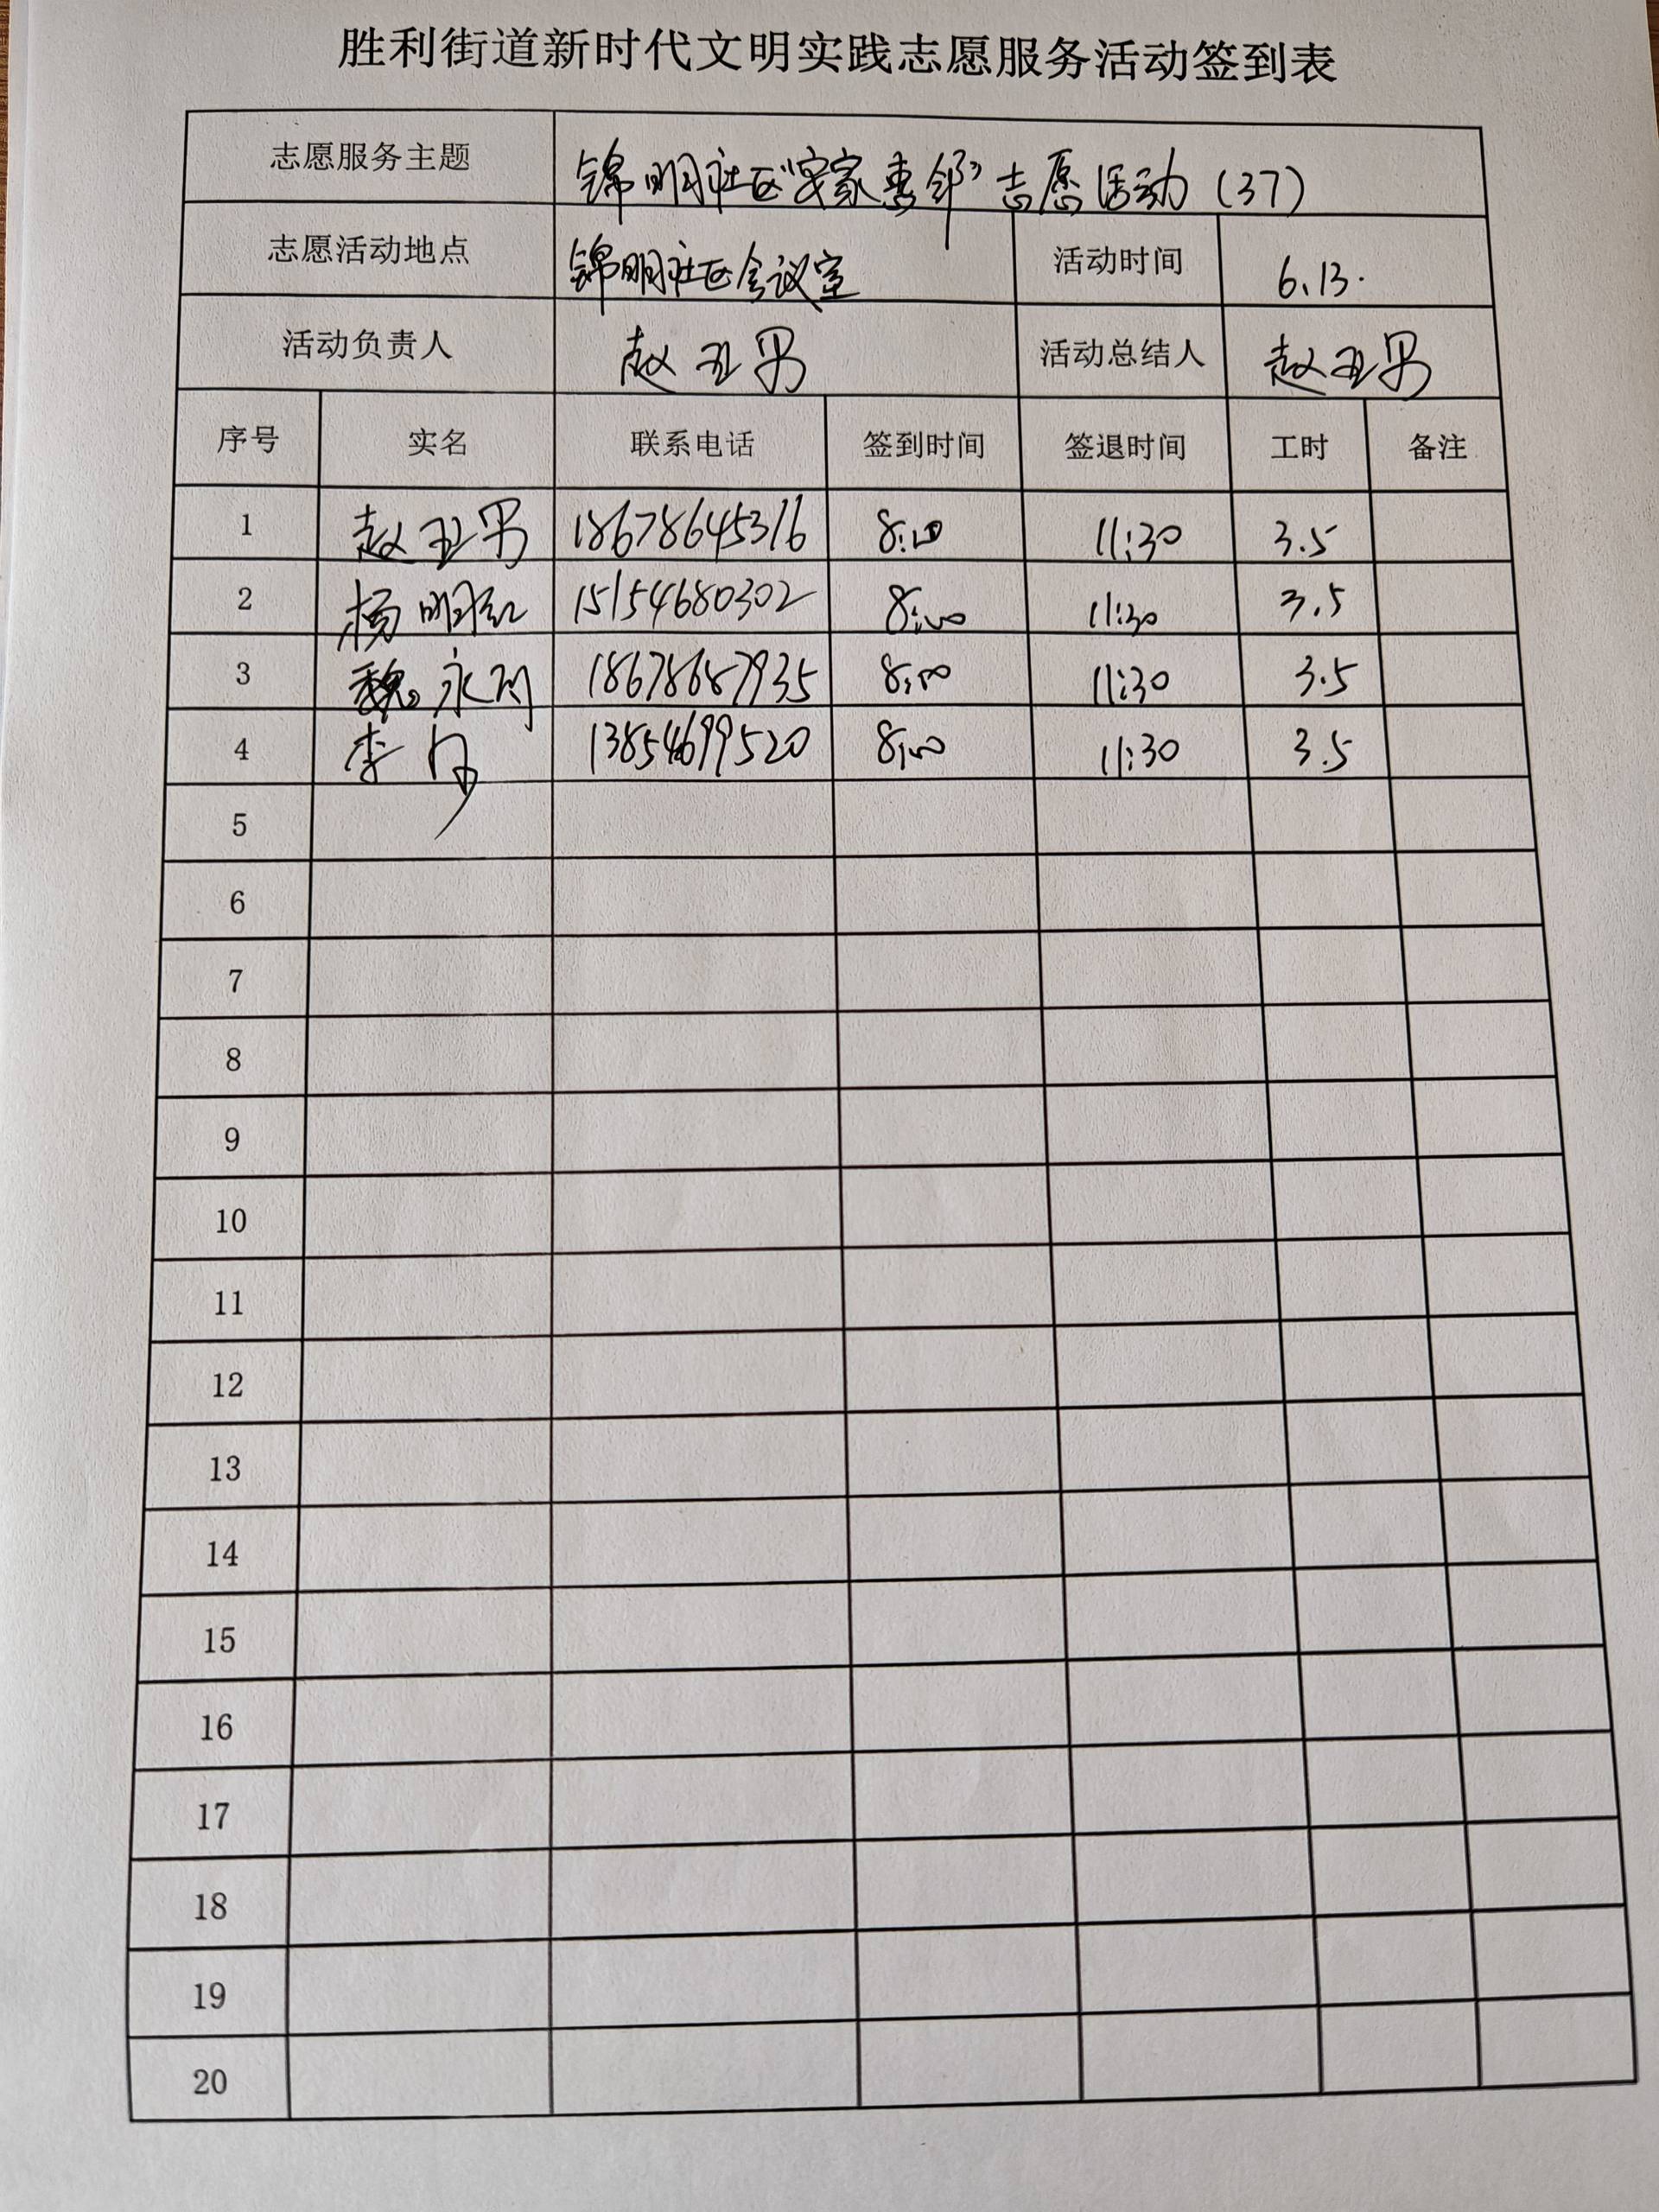 胜利街道新时代文明实践志愿服务活动签到表
志愿服务主题 锦明社区“安家惠邻”志愿活动（37）
志愿活动地点 锦明社区会议室 活动时间 6.13.
活动负责人 赵亚男 活动总结人 赵亚男
序号 实名 联系电话 签到时间 签退时间 工时 备注
1 赵亚男 18678645316 8:00 11:30 3.5
2 杨明红 15154680302 8:00 11:30 3.5
3 魏永刚 18678687935 8:00 11:30 3.5
4 李 13854699520 8:00 11:30 3.5
5
6
7
8
9
10
11
12
13
14
15
16
17
18
19
20